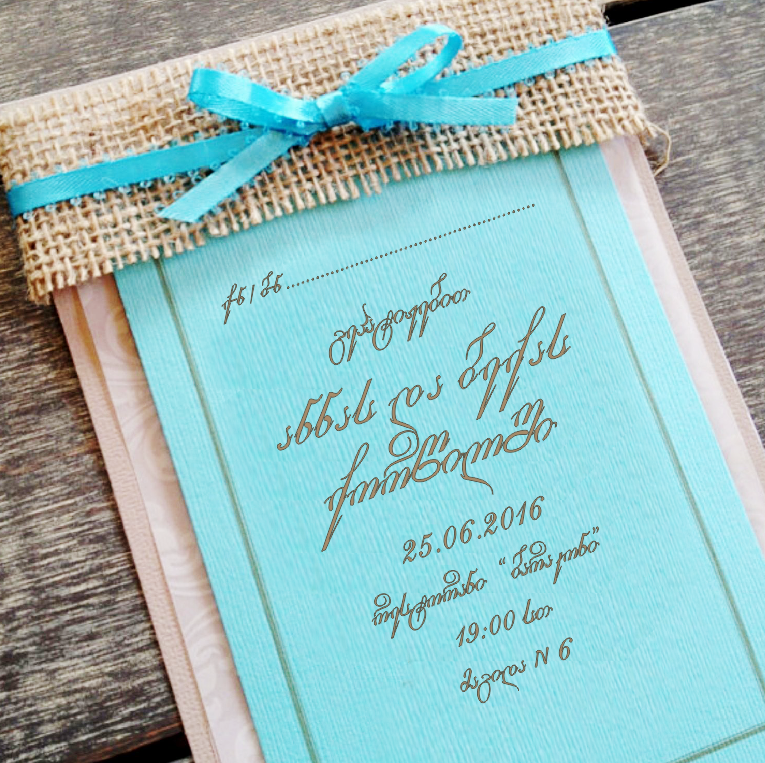 ქნ / ბნ ........................................
გეპატიჟებით
ანნას და ბექას
ქორწილში
25.06.2016
რესტორანი “
19:00 სთ
მაგიდა N 6